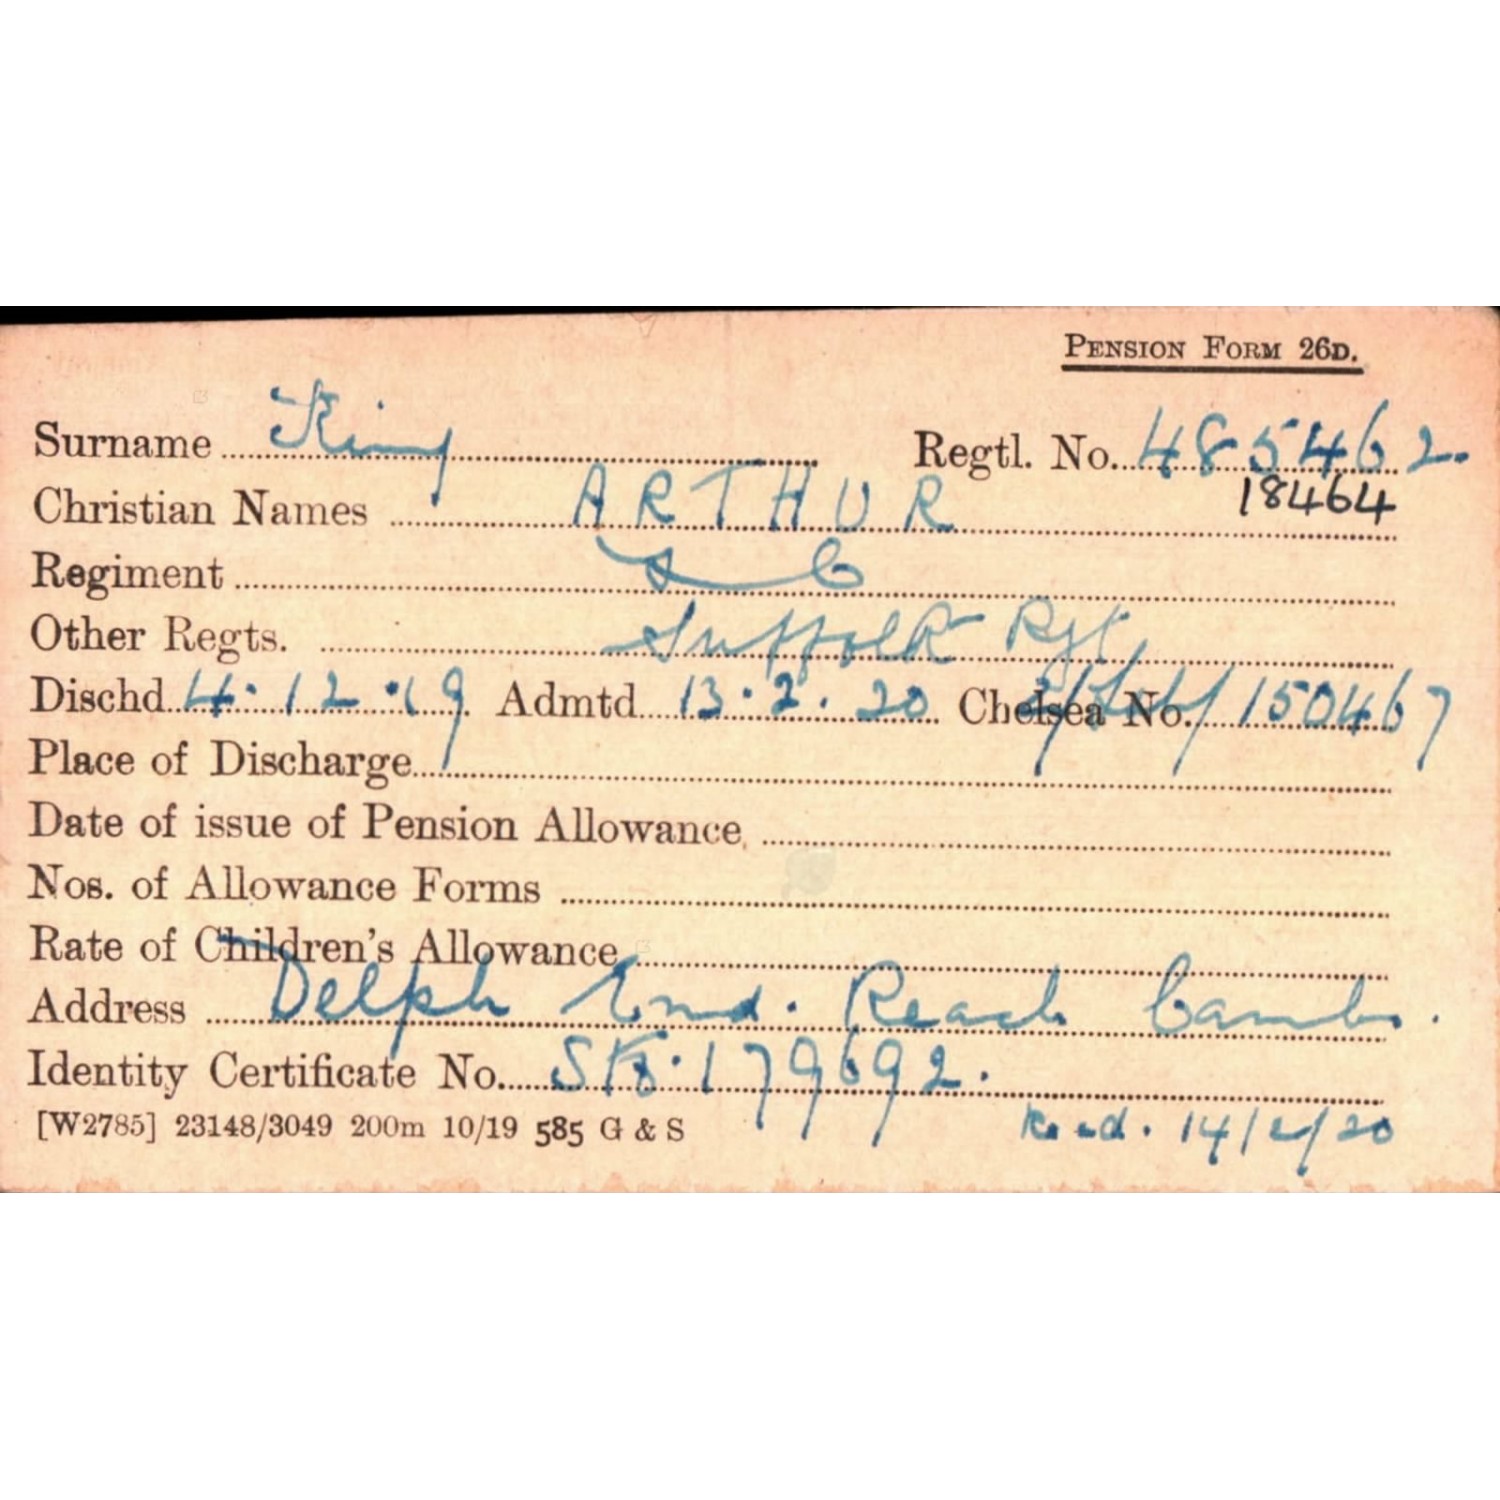 PENSION FORM 26D.
Surname King Regtl. No. 485462.
18464
Christian Names ARTHUR
Regiment L C
Other Regts. Suffolk Rgt
Dischd. 4.12.19 Admtd. 13.2.20 Chelsea No. 150467
Place of Discharge
Date of issue of Pension Allowance
Nos. of Allowance Forms
Rate of Children's Allowance
Address Delph End. Reach Cambs.
Identity Certificate No. 179692.
[W2785] 23148/3049 200m 10/19 585 G & S
14/2/20